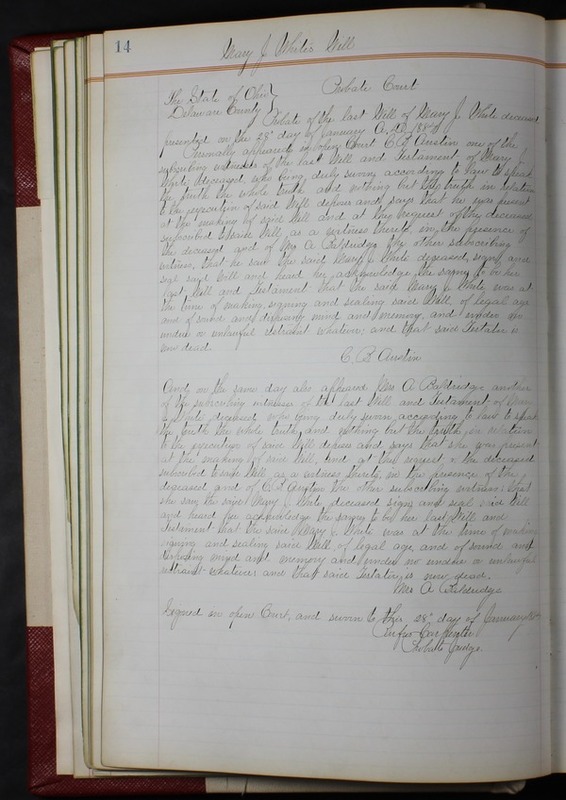 14
Mary J. White's Will
The State of Ohio } Probate Court
Delaware County }
Probate of the last Will of Mary J. White deceased
presented on the 28th day of January A.D. 188
Personally appeared in open Court C B Austin one of the
subscribing witnesses of the last Will and Testament of Mary J.
White deceased, who being duly sworn according to law to speak
the truth the whole truth and nothing but the truth in relation
to the execution of said Will deposes and says that he was present
at the making of said Will and at the request of the deceased
subscribed to said Will, as a witness thereto, in the presence of
the deceased and of Mrs A Beldridge the other subscribing
witness, that he saw the said Mary J White deceased, sign and
seal said Will and heard her acknowledge the same to be her
last Will and Testament that the said Mary J. White was at
the time of making, signing and sealing said Will, of legal age
and of sound and disposing mind and memory, and under no
undue or unlawful restraint whatever; and that said Testator is
now dead.
C. B Austin
And on the same day also appeared Mrs A Beldridge another
of the subscribing witnesses of the last Will and Testament of Mary
J. White deceased, who being duly sworn according to law to speak
the truth the whole truth and nothing but the truth, in relation
to the execution of said Will deposes and says that she was present
at the making of said Will, and at the request of the deceased
subscribed to said Will, as a witness thereto, in the presence of the
deceased and of C. B. Austin the other subscribing witness; that
she saw the said Mary J White, deceased sign and seal said Will
and heard her acknowledge the same to be her last Will and
Testament that the said Mary J. White was at the time of making
signing and sealing said Will of legal age and of sound and
disposing mind and memory and under no undue or unlawful
restraint whatever; and that said Testator is now dead.
Mrs A Beldridge
Signed in open Court, and sworn to this 28th day of January
Rufus Carpenter
Probate Judge.